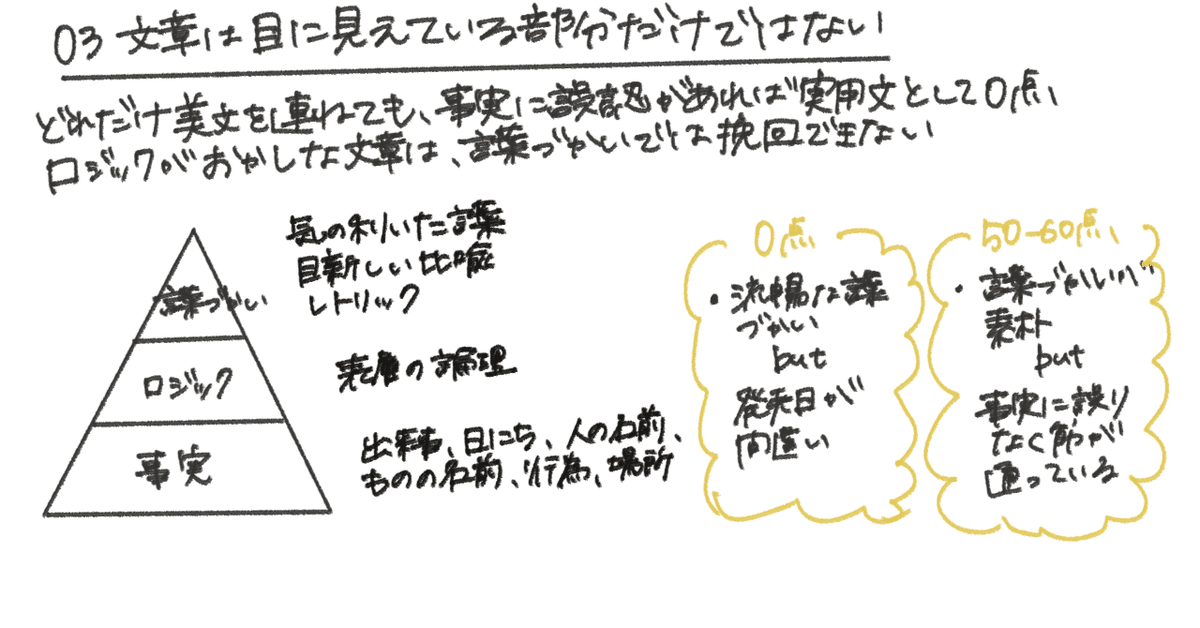 03 文章は目に見えている部分だけではない
どれだけ美文を連ねても、事実に誤認があれば実用文として0点
ロジックがおかしな文章は、言葉づかいでは挽回できない
言葉づかい
ロジック
事実
気の利いた言葉
目新しい比喩
レトリック
表層の論理
出来事、日にち、人の名前、
ものの名前、行為、場所
0点
・流暢な言葉
づかい
but
発売日が
間違い
50-60点
・言葉づかいが
素朴
but
事実に誤り
なく筋が
通っている